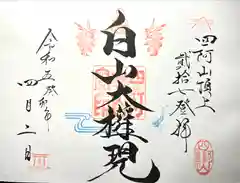 四阿山頂上
貳拾七登拝
白山大權現
令和五癸卯年
四月二日